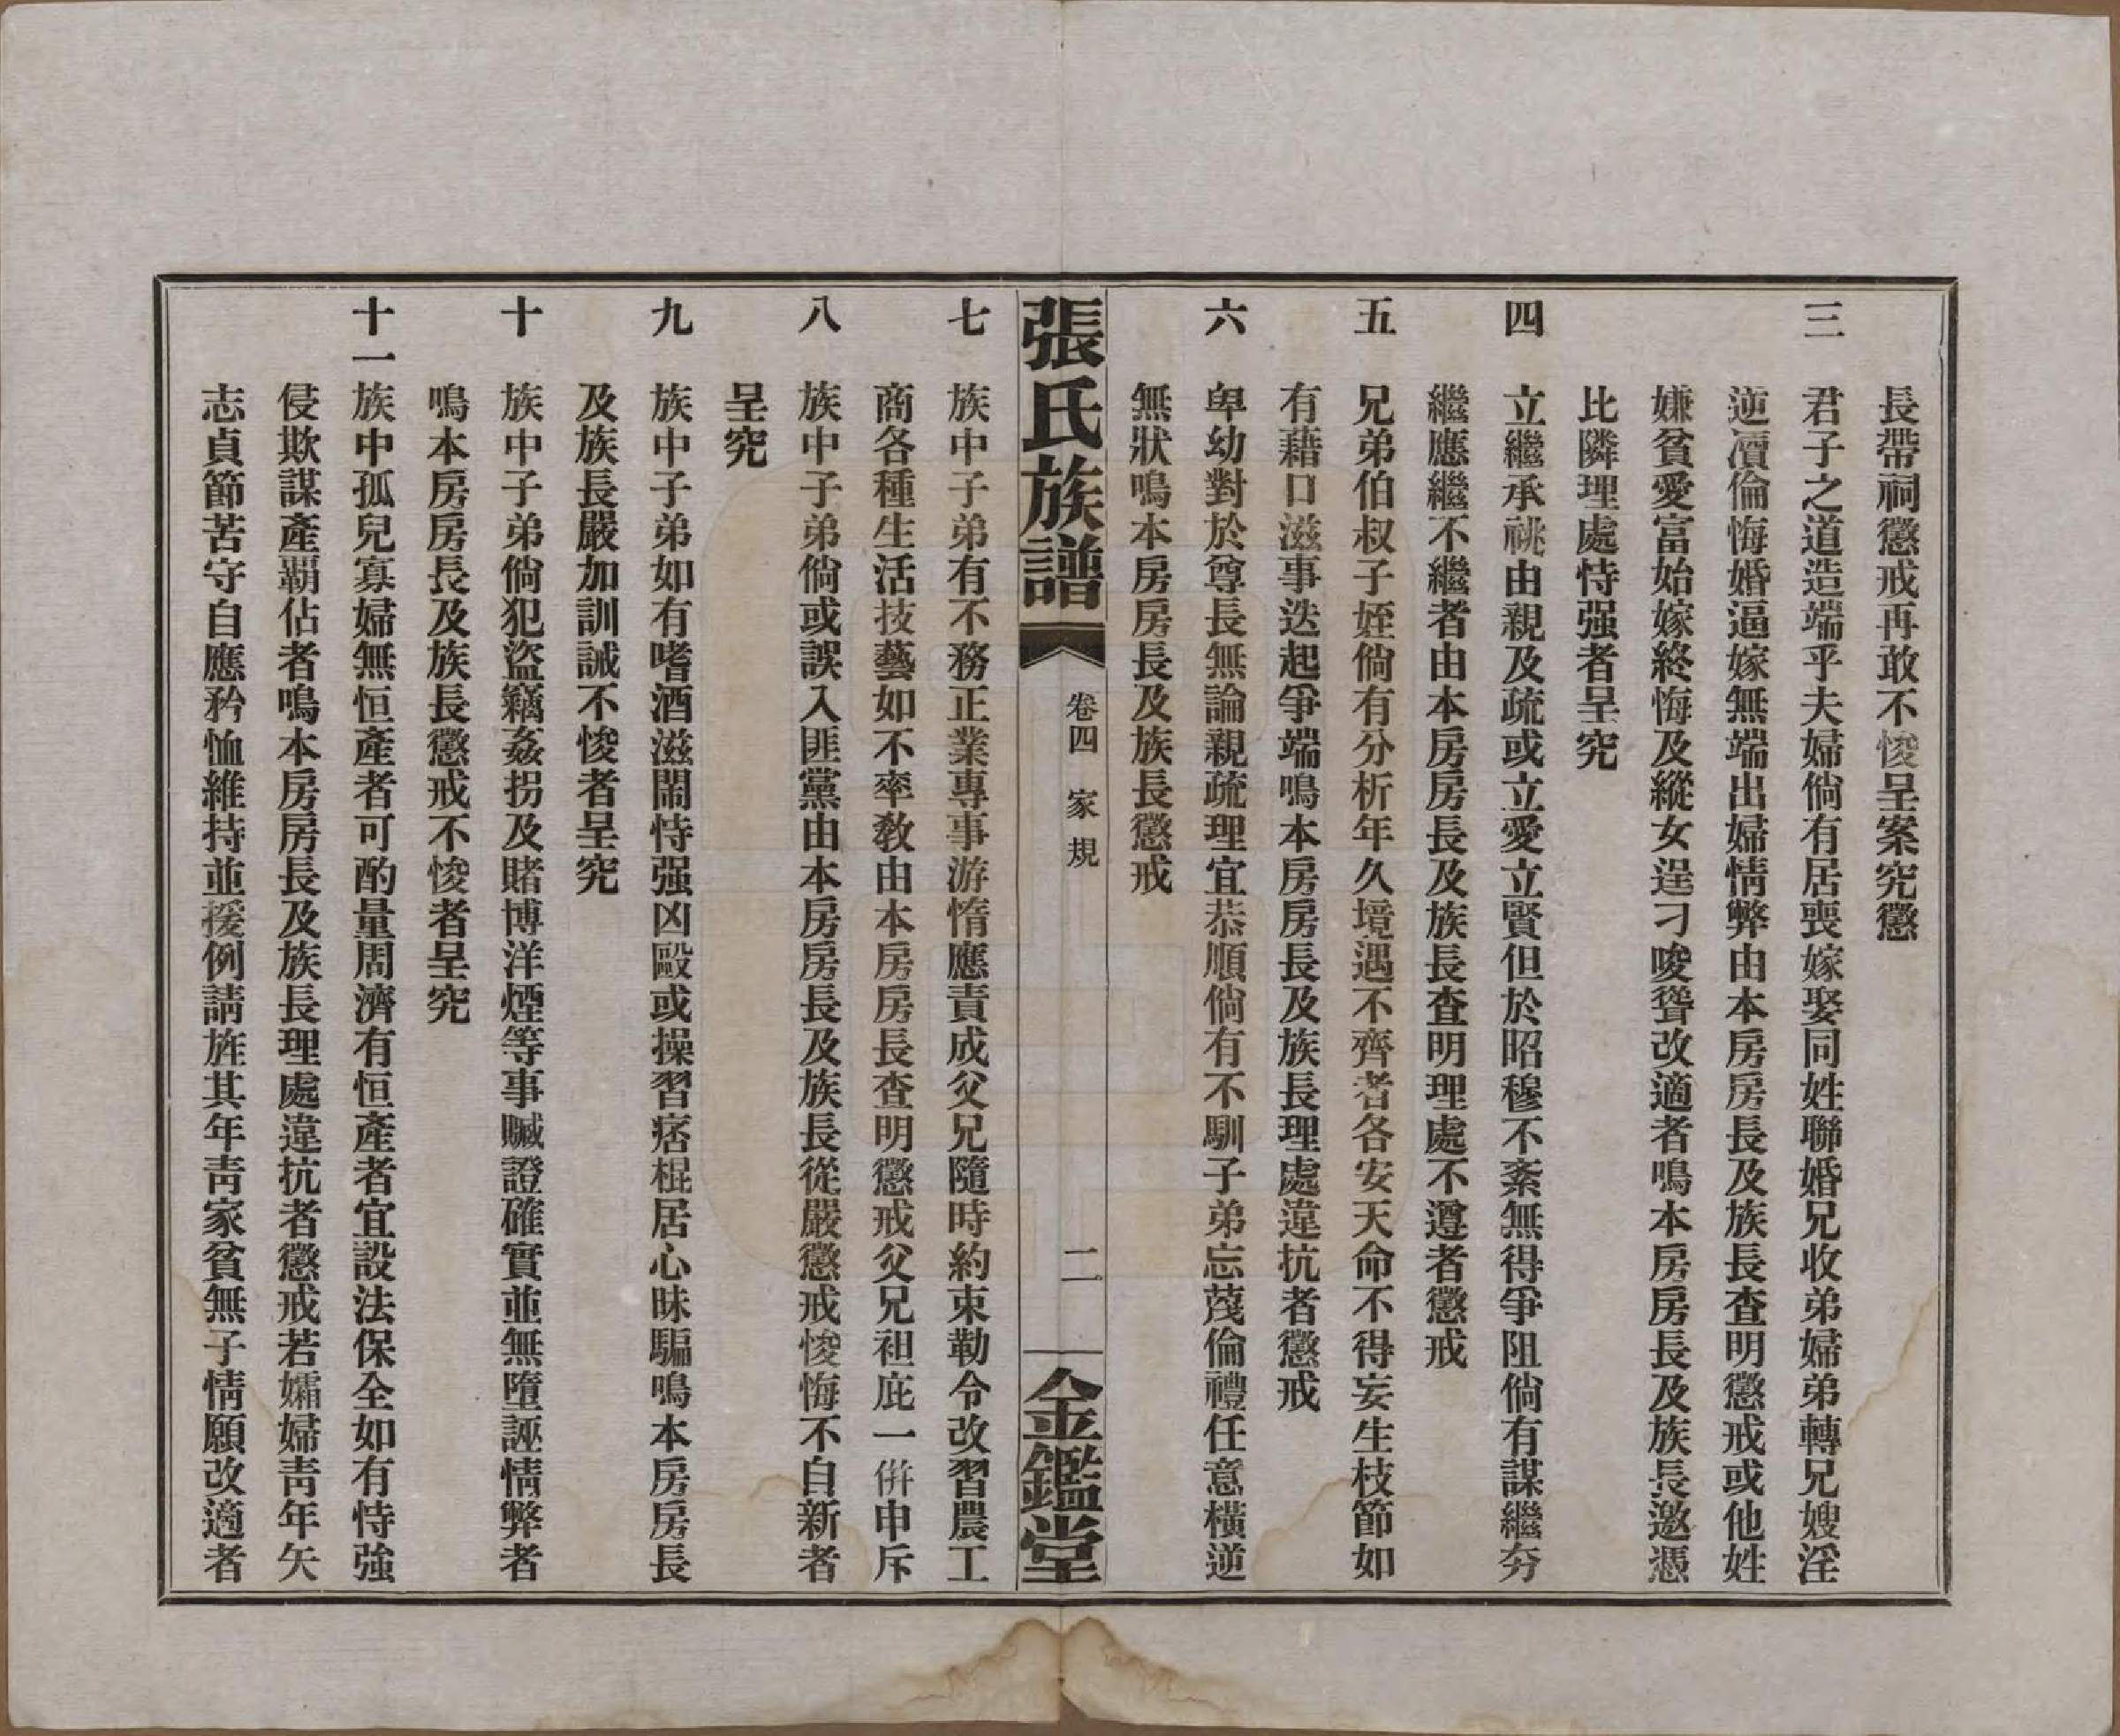 長帶祠懲戒再敢不悛呈案究懲
三　君子之道造端乎夫婦倘有居喪嫁娶同姓聯婚兄收弟婦弟轉兄嫂淫
逆瀆倫悔婚逼嫁無端出婦情弊由本房房長及族長查明懲戒或他姓
嫌貧愛富始嫁終悔及縱女逞刁唆聳改適者鳴本房房長及族長邀憑
比隣理處恃强者呈究
四　立繼承祧由親及疏或立愛立賢但於昭穆不紊無得爭阻倘有謀繼夯
繼應繼不繼者由本房房長及族長查明理處不遵者懲戒
五　兄弟伯叔子姪倘有分析年久境遇不齊者各安天命不得妄生枝節如
有藉口滋事迭起爭端鳴本房房長及族長理處違抗者懲戒
六　卑幼對於尊長無論親疏理宜恭順倘有不馴子弟忘蔑倫禮任意橫逆
無狀鳴本房房長及族長懲戒
張氏族譜　卷四　家規　二　金鑑堂
七　族中子弟有不務正業專事游惰應責成父兄隨時約束勒令改習農工
商各種生活技藝如不率敎由本房房長查明懲戒父兄袒庇一併申斥
八　族中子弟倘或誤入匪黨由本房房長及族長從嚴懲戒悛悔不自新者
呈究
九　族中子弟如有嗜酒滋鬧恃强凶毆或操習痞棍居心昧騙鳴本房房長
及族長嚴加訓誡不悛者呈究
十　族中子弟倘犯盜竊姦拐及賭博洋煙等事贓證確實並無墮誣情弊者
鳴本房房長及族長懲戒不悛者呈究
十一　族中孤兒寡婦無恒產者可酌量周濟有恒產者宜設法保全如有恃強
侵欺謀產覇佔者鳴本房房長及族長理處違抗者懲戒若孀婦靑年矢
志貞節苦守自應矜恤維持並援例請旌其年靑家貧無子情願改適者